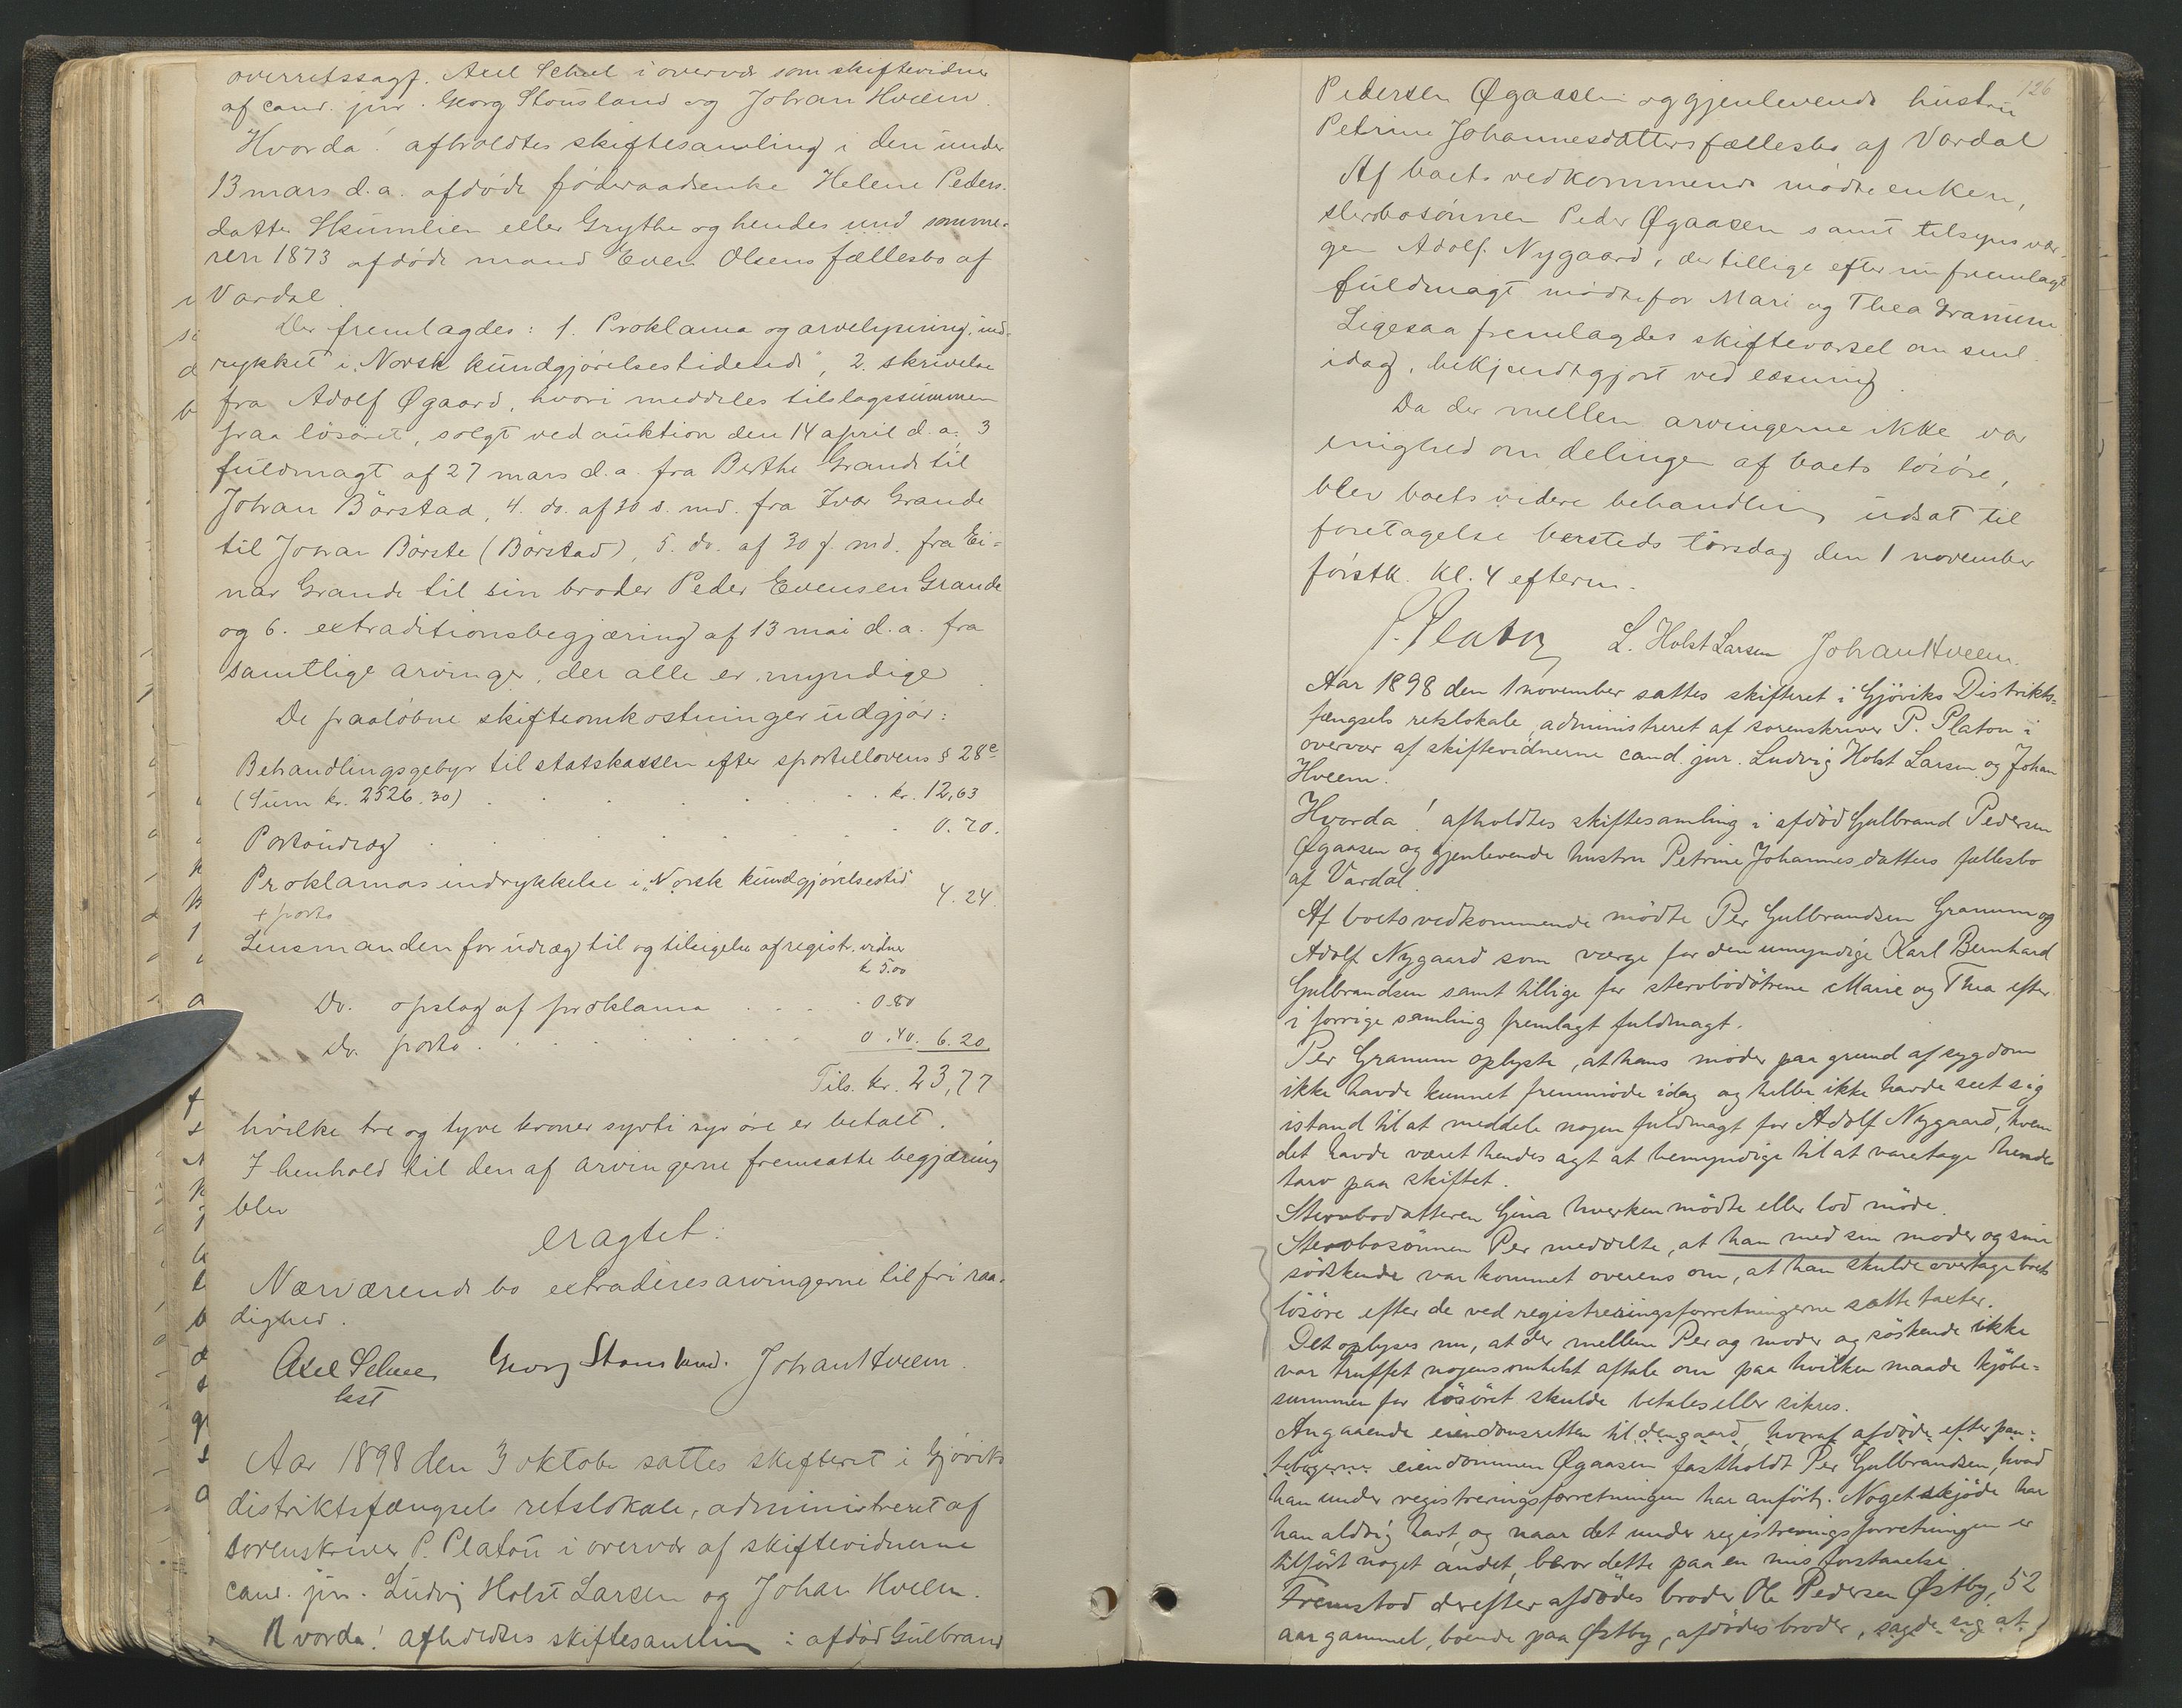 overretssagf. Axel Schee i overvær som skiftevidner
af cand. jur. Georg Stousland og Johan Hveem.
Hvorda! afholdtes skiftesamling i den under
13 mars d. a. afdöde föderaadsenke Helene Peders-
datter Skumlien eller Grythe og hendes und somme-
ren 1873 afdöde mand Even Olsens fællesbo af
Vardal.
Der fremlagdes: 1. Proklama og arvelysning, ind-
rykket i „Norsk kundgjörelsestidende", 2. skrivelse
fra Adolf Øgaard, hvori meddeles tilslagssummen
paa lösöret, solgt ved auktion den 14 april d. a. 3
fuldmagt af 27 mars d. a. fra Berthe Grande til
Johan Börstad, 4. do. af 30 s. md. fra Ivar Grande
til Johan Börste (Börstad), 5. do. af 30 f. md. fra Ei-
nar Grande til sin broder Peder Evensen Grande
og 6. extraditionsbegjæring af 13 mai d. a. fra
samtlige arvinger, der alle er myndige.
De paalöbne skifteomkostninger udgjör:
Behandlingsgebyr til statskassen efter sportellovens § 28 c
(Sum kr. 2526.30) . . . kr. 12,63
Portoudlæg . . . 0.70.
Proklamas indrykkelse i „Norsk kundgjörelsestid
+ porto 4.24
Lensmanden for udlæg til og tilsigelse af registr. vidner
kr 5.00
Do. opslag af proklama . . . 0.80
Do. porto . . . 0.40. 6.20
Tils. kr. 23,77
hvilke tre og tyve kroner sytti syv öre er betalt.
I henhold til den af arvingerne fremsatte begjæring
blev
eragtet:
Nærværende bo extraderes arvingerne til fri raa-
dighed.
Axel Schee Georg Stousland. Johan Hveem.
kst
Aar 1898 den 3 oktober sattes skifteret i Gjöviks
distriktsfængsels retslokale, administreret af
sorenskriver P. Platou i overvær af skiftevidnerne
cand. jur. Ludvig Holst Larsen og Johan Hveem.
Hvorda! afholdtes skiftesamling i afdöd Gulbrand
126
Pedersen Øgaasen og gjenlevende hustru
Petrine Johannesdatters fællesbo af Vardal
Af boets vedkommende mödte enken,
sterbosönnen Peder Øgaasen samt tilsynsvær-
gen Adolf Nygaard, der tillige efter nu fremlagt
fuldmagt mödte for Mari og Thea Granum.
Ligesaa fremlagdes skiftevarsel om saml.
idag, bekjendtgjort ved læsning.
Da der mellem arvingerne ikke var
enighed om delingen af boets lösöre,
blev boets videre behandling udsat til
foretagelse hersteds torsdag den 1 november
förstk. kl. 4 efterm.
P. Platou L. Holst Larsen Johan Hveem.
Aar 1898 den 1 november sattes skifteret i Gjöviks Distrikts-
fængsels retslokale, administreret af sorenskriver P. Platou i
overvær af skiftevidnerne cand. jur. Ludvig Holst Larsen og Johan
Hveem.
Hvorda! afholdtes skiftesamling i afdöd Gulbrand Pedersen
Øgaasen og gjenlevende hustru Petrine Johannesdatters fællesbo
af Vardal.
Af boets vedkommende mödte Per Gulbrandsen Granum og
Adolf Nygaard som værge for den umyndige Karl Bernhard
Gulbrandsen samt tillige for stervbodötrene Marie og Thea efter
i forrige samling fremlagt fuldmagt.
Per Granum oplyste, at hans moder paa grund af sygdom
ikke havde kunnet fremmöde idag og heller ikke havde seet sig
istand til at meddele nogen fuldmagt for Adolf Nygaard, hvem
det havde været hendes agt at bemyndige til at varetage hendes
tarv paa skiftet.
Stervbodatteren Gina hverken mödte eller lod möde.
Stervbosönnen Per meddelte, at han med sin moder og sine
södskende var kommet overens om, at han skulde overtage boets
lösöre efter de ved registreringsforretningerne satte taxter.
Det oplyses nu, at der mellem Per og moder og söskende ikke
var truffet nogensomhelst aftale om paa hvilken maade kjöbe-
summen for lösöret skulde betales eller sikres.
Angaaende eiendomsretten til den gaard, hvoraf afdöde efter pan-
tebögerne eiendommen Øgaasen fastholdt Per Gulbrandsen, hvad
han under registreringsforretningen har anfört. Noget skjöde har
han aldrig havt, og naar det under registreringsforretningen er
tilfört noget andet, beror dette paa en misforstaaelse.
Fremstod derefter afdödes broder Ole Pedersen Østby, 52
aar gammel, boende paa Østby, afdödes broder, sagde sig at